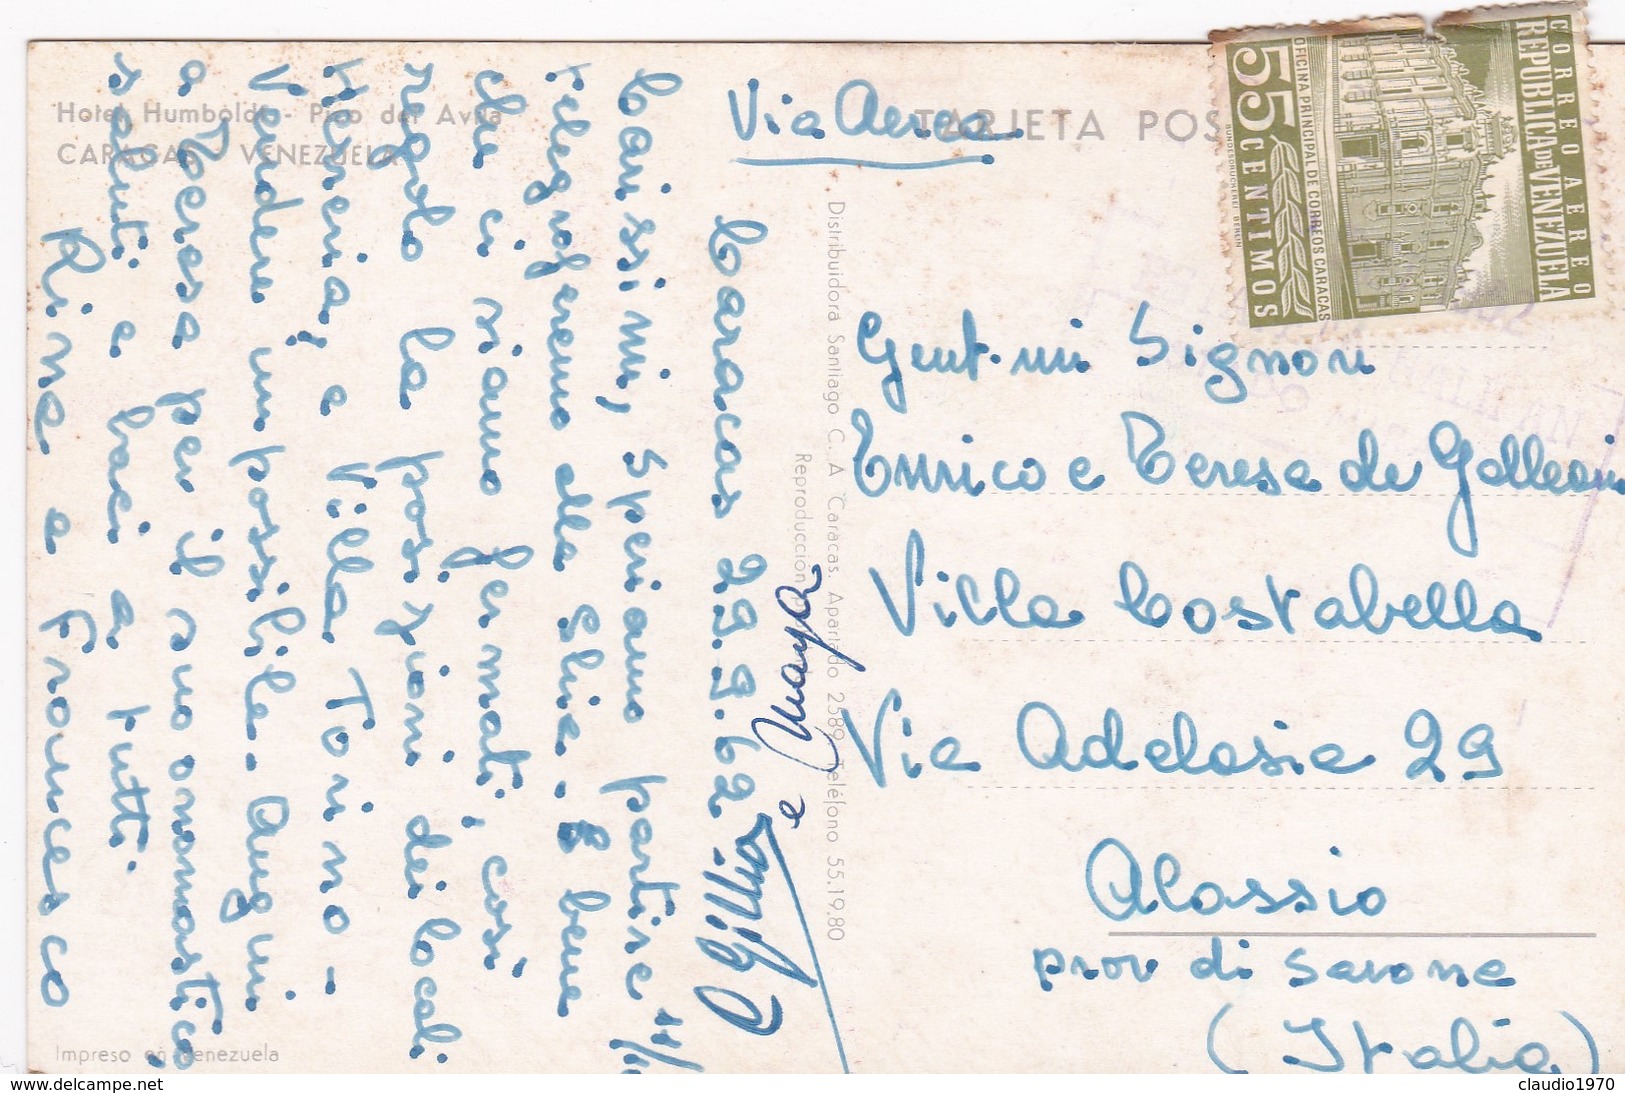 Hotel Humboldt - Pico del Avila
CARACAS - VENEZUELA
TARJETA POS
Via Aerea
CORREO AEREO
REPUBLICA DE VENEZUELA
OFICINA PRINCIPAL DE CORREOS CARACAS
55 CENTIMOS
BUNDESDRUCKEREI BERLIN
Caracas 29.9.62
Carissimi, Speriamo partire 11/
telegraferemo alla Shia. È bene
che ci siamo fermati, così
regolo la posizioni dei locali
Kenseria, e Villa Torino -
Vendere impossibile. Auguri
a Teresa per il suo onomastico
saluti e baci a tutti
Rina e Francesco
e Maya
Distribuidora Santiago C. A. Caracas. Apartado 2589 Teléfono 55.19.80
Reproducción
Gent.mi Signori
Enrico e Teresa de Galleani
Villa Costabella
Via Adelasia 29
Alassio
prov di Savona
(Italia)
Impreso en Venezuela
claudio1970